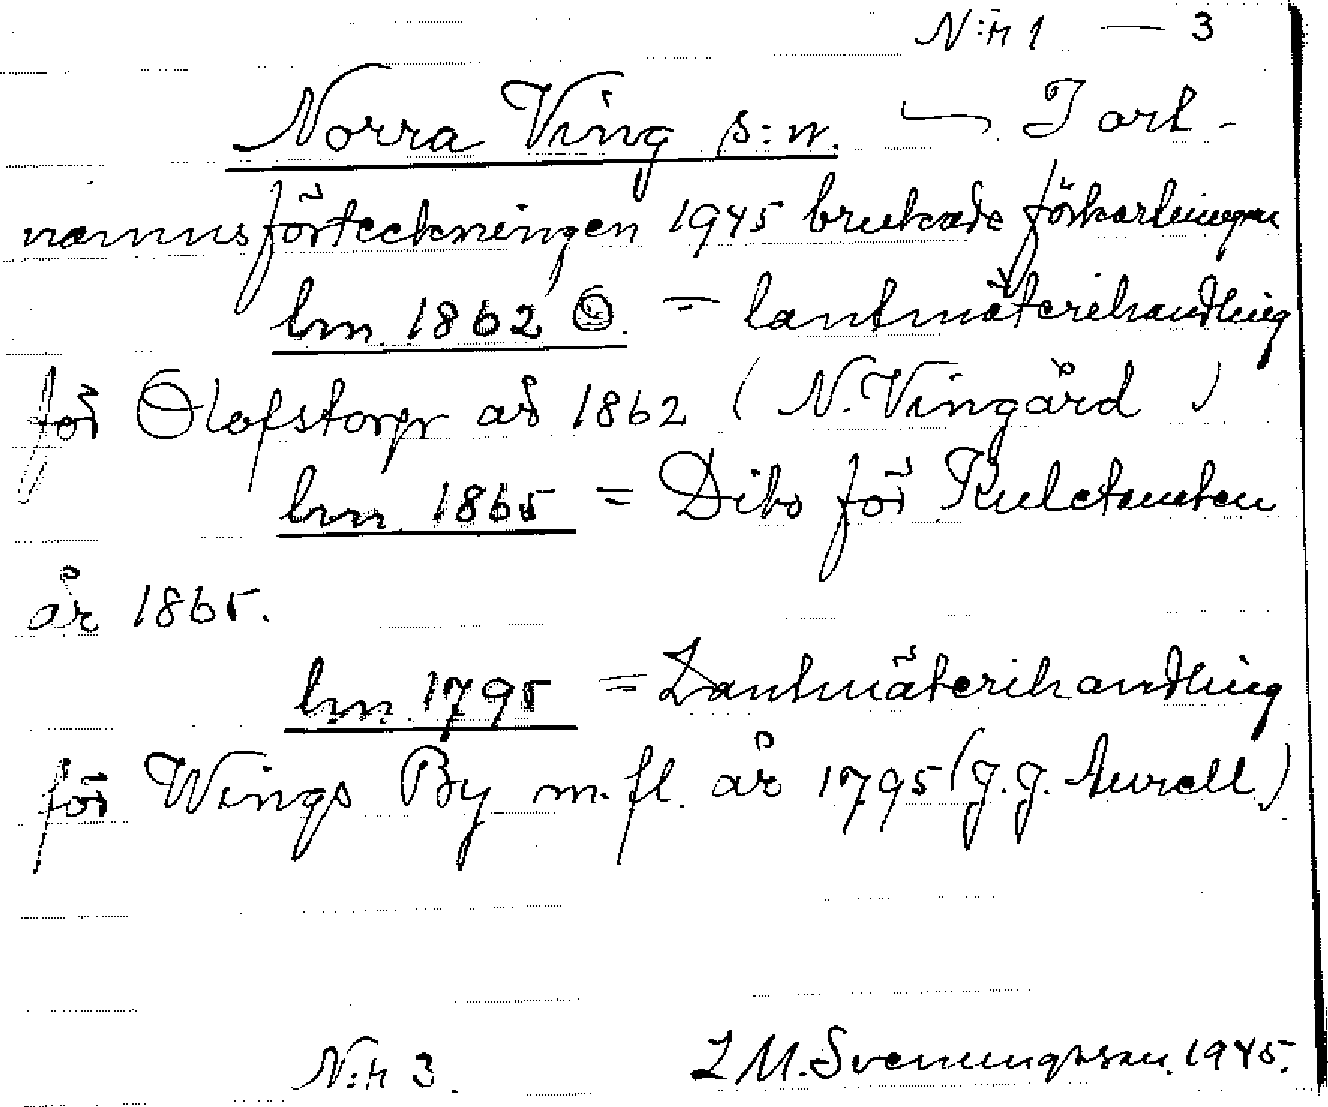 N:r 1 — 3
Norra Ving s:n. — I ort-
namnsförteckningen 1945 brukade förkortningar
lm. 1862 O. = lantmäterihandling
för Olofstorp år 1862 (N. Vingård)
lm. 1865 = Dito för
år 1865.
lm. 1795 = Lantmäterihandling
för Wings By m. fl. år 1795 (J. J. Aurell)
N:r 3. L M. Svenungsson. 1945.